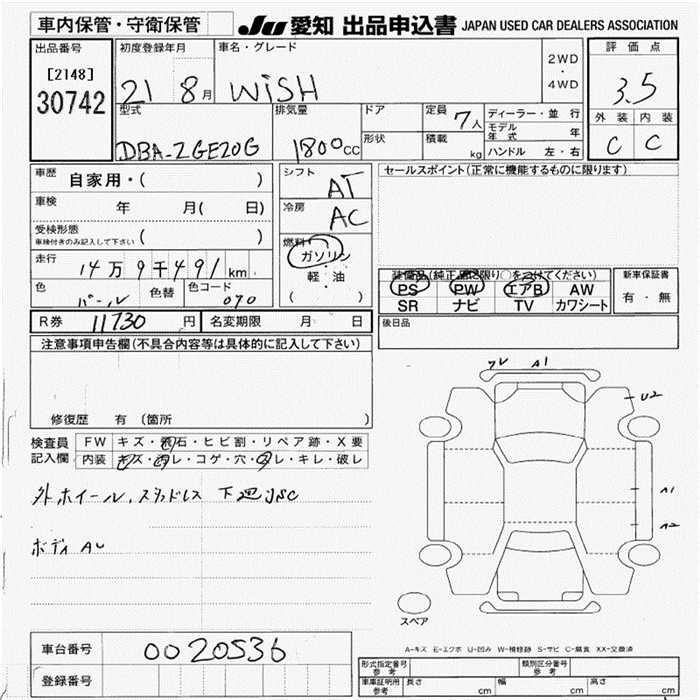 車内保管・守衛保管 JU 愛知 出品申込書 JAPAN USED CAR DEALERS ASSOCIATION
出品番号 [2148] 30742
初度登録年月 21 8月
車名・グレード WiSH
2WD・4WD
評価点 3.5
外装 内装
C C
型式 DBA-ZGE20G
排気量 1800cc
ドア
形状
定員 7人
積載 kg
ディーラー・並行
モデル年式 年
ハンドル 左・右
車歴 自家用・( )
車検 年 月( 日)
受検形態 車検付きのみ記入して下さい ( )
走行 14万9千491km
色 パール 色替 色コード 070
シフト AT
冷房 AC
燃料 ガソリン・軽・油 ( )
セールスポイント(正常に機能するものに限ります)
装備品(純正品に限り○をつけてください)
PS PW エアB AW
SR ナビ TV カワシート
新車保証書
有・無
R券 11730円 名変期限 月 日
後日品
注意事項申告欄(不具合内容等は具体的に記入して下さい)
修復歴 有 (箇所 )
検査員記入欄
FW キズ・飛石・ヒビ割・リペア跡・X要
内装 キズ・汚レ・コゲ・穴・スレ・キレ・破レ
外ホイール、スタッドレス 下廻JSC
ボディAU
A1
U2
A1
A2
スペア
A-キズ E-エクボ U-凹み W-補修跡 S-サビ C-腐食 XX-交換済
車台番号 0020536
登録番号
形式指定番号 参考
類別区分番号 参考
車庫証明用 参考 長さ cm 幅 cm 高さ cm